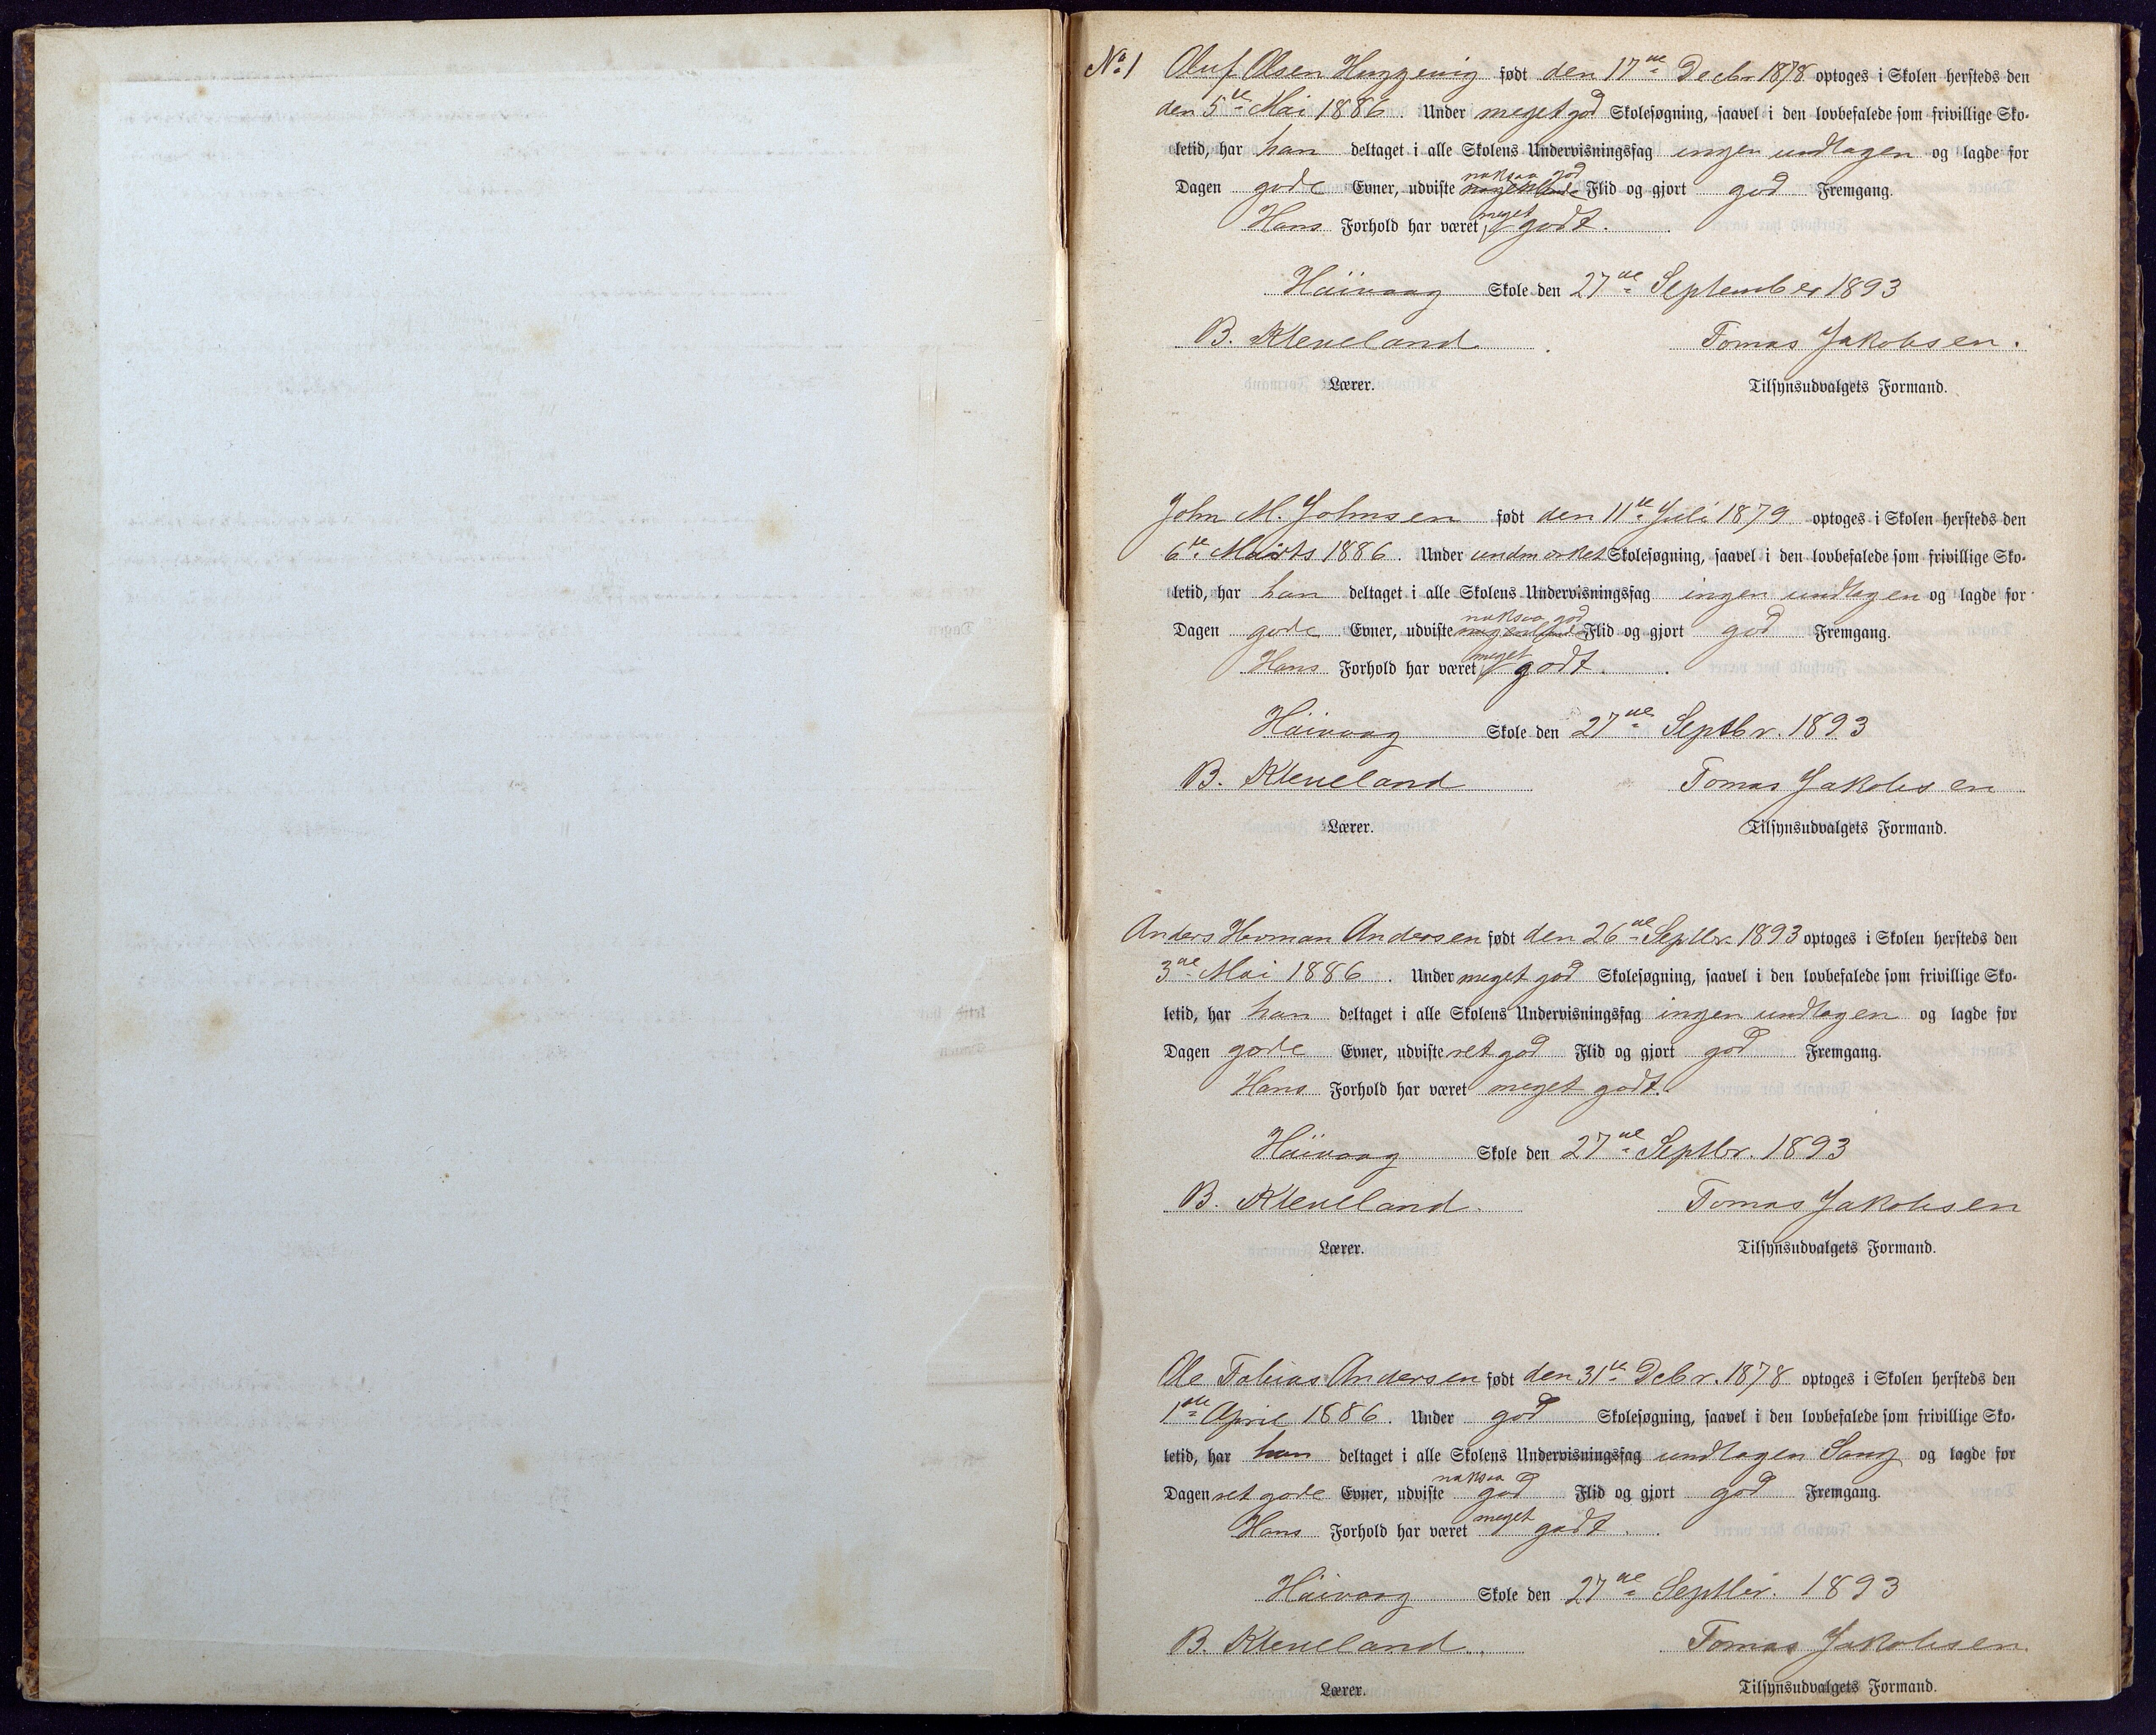 No 1 Oluf Olsen Huggevig født den 17de Decbr 1878 optoges i Skolen hersteds den
den 5te Mai 1886. Under meget god Skolesøgning, saavel i den lovbefalede som frivillige Sko-
letid, har han deltaget i alle Skolens Undervisningsfag ingen undtagen og lagde for
noksaa god
Dagen gode Evner, udviste Flid og gjort god Fremgang.
meget
Hans Forhold har været, godt.
Häivaag Skole den 27de September 1893
B. Kleveland Tomas Jakobsen.
Lærer. Tilsynsudvalgets Formand.
John M. Johnsen født den 11te Juli 1879 optoges i Skolen hersteds den
6te Marts 1886. Under undmærket Skolesøgning, saavel i den lovbefalede som frivillige Sko-
letid, har han deltaget i alle Skolens Undervisningsfag ingen undtagen og lagde for
noksaa god
Dagen gode Evner, udviste Flid og gjort god Fremgang.
meget
Hans Forhold har været godt.
Häivaag Skole den 27de Septbr. 1893
B. Kleveland Tomas Jakobsen
Lærer. Tilsynsudvalgets Formand.
Anders Herman Andersen født den 26de Septbr. 1893 optoges i Skolen hersteds den
3de Mai 1886. Under meget god Skolesøgning, saavel i den lovbefalede som frivillige Sko-
letid, har han deltaget i alle Skolens Undervisningsfag ingen undtagen og lagde for
Dagen gode Evner, udviste ret god Flid og gjort god Fremgang.
Hans Forhold har været meget godt.
Häivaag Skole den 27de Septbr. 1893
B. Kleveland. Tomas Jakobsen
Lærer. Tilsynsudvalgets Formand.
Ole Tobias Andersen født den 31te Dcbr. 1878 optoges i Skolen hersteds den
1ste April 1886. Under god Skolesøgning, saavel i den lovbefalede som frivillige Sko-
letid, har han deltaget i alle Skolens Undervisningsfag undtagen Sang og lagde for
noksaa
Dagen ret gode Evner, udviste god Flid og gjort god Fremgang.
meget
Hans Forhold har været godt.
Häivaag Skole den 27de Septbr. 1893
B. Kleveland. Tomas Jakobsen.
Lærer. Tilsynsudvalgets Formand.